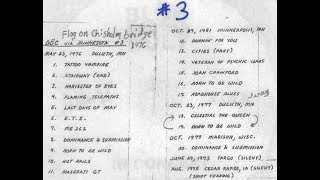 #3
Flag on Chisholm bridge
1976
BÖC VIA MINNESOTA #3
MAY 23, 1976 DULUTH, MN
1. TATTOO VAMPIRE
2. STAIRWAY (END)
3. HARVESTER OF EYES
4. FLAMING TELEPATHS
5. LAST DAYS OF MAY
6. E.T.I.
7. ME 262
8. DOMINANCE & SUBMISSION
9. BORN TO BE WILD
10. HOT RAILS
11. MASERATI GT
OCT. 29, 1981 MINNEAPOLIS, MN
12. BURNIN' FOR YOU
13. CITIES (PART)
14. VETERAN OF PSYCHIC WARS
15. JOAN CRAWFORD
16. BORN TO BE WILD
17. ROADHOUSE BLUES
OCT. 23, 1977 DULUTH, MN
18. CELESTIAL THE QUEEN
19. BORN TO BE WILD
OCT. 1979 MADISON, WISC.
20. DOMINANCE & SUBMISSION
JUNE 29, 1973 FARGO (SILENT)
AUG. 1975 CEDAR RAPIDS IA (SILENT)